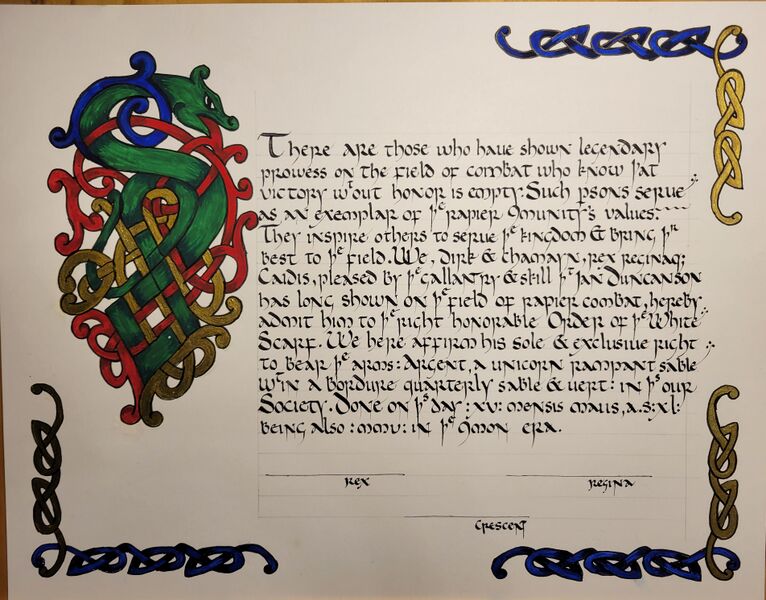 There are those who have shown legendary
prowess on the field of combat who know þat
victory wtout honor is empty. Such psons serve
as an exemplar of þe rapier 9munity's values:
They inspire others to serve þe kingdom & bring þr
best to þe field. We, Dirk & Chamayn, rex reginaq;
Caidis, pleased by þe gallantry & skill þt Ian Duncanson
has long shown on þe field of rapier combat, hereby
admit him to þe right honorable Order of þe White
Scarf. We here affirm his sole & exclusive right
to bear þe arms: Argent, a unicorn rampant sable
w'in a bordure quarterly sable & vert: in þs our
Society. Done on þs day: xv: mensis maiis, a.s: xl:
being also: mmv: in þe 9mon era.
Rex
Regina
Crescent